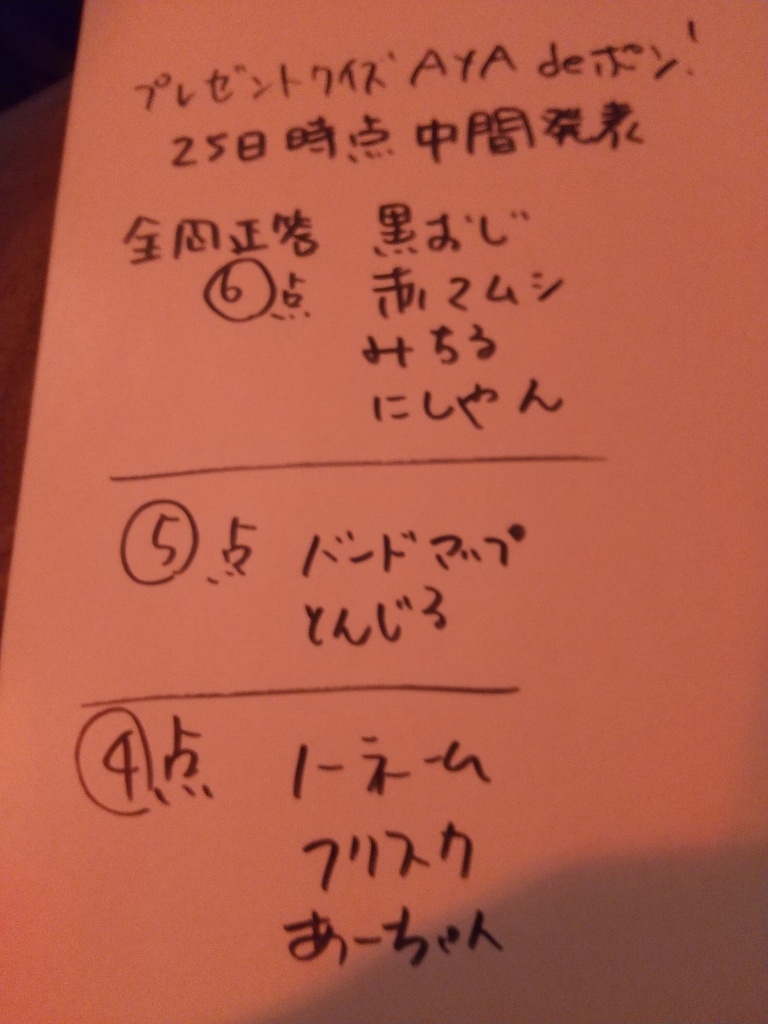 プレゼントクイズ AYA deポン!
25日時点 中間発表
全問正答 黒おじ
⑥点 赤いマムシ
みちる
にしやん
⑤点 バンドマップ
とんじる
④点 ノーネーム
フリスク
あーちゃん